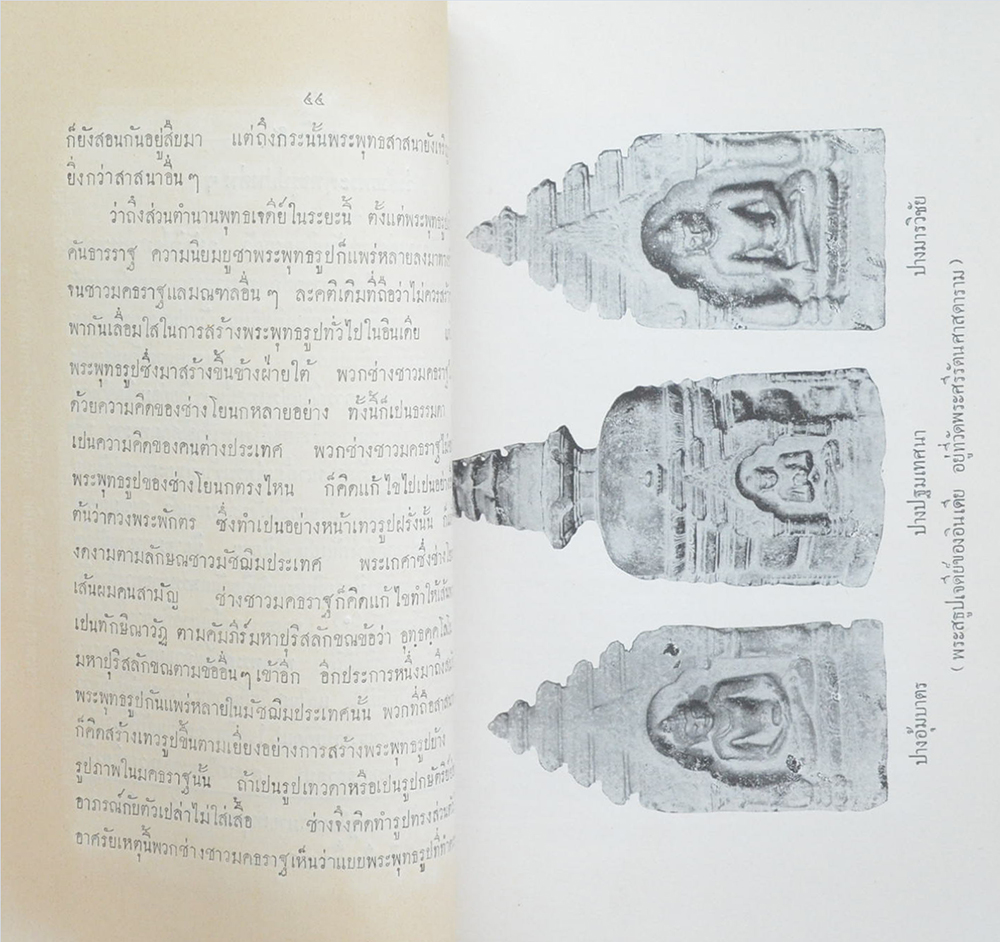 ๕๔
ก็ยังสอนกันอยู่สืบมา แต่ถึงกระนั้นพระพุทธสาสนายัง
ยิ่งกว่าสาสนาอื่น ๆ
ว่าถึงส่วนตำนานพุทธเจดีย์ในระยะนี้ ตั้งแต่พระพุทธรูป
คันธารราฐ ความนิยมบูชาพระพุทธรูปก็แพร่หลายลงมา
จนชาวมคธราฐแลมณฑลอื่น ๆ ละคติเดิมที่ถือว่าไม่ควรสร้าง
พากันเลื่อมใสในการสร้างพระพุทธรูปทั่วไปในอินเดีย
พระพุทธรูปซึ่งมาสร้างขึ้นข้างฝ่ายใต้ พวกช่างชาวมคธราฐ
ด้วยความคิดของช่างโยนกหลายอย่าง ทั้งนี้ก็เป็นธรรมดา
เป็นความคิดของคนต่างประเทศ พวกช่างชาวมคธราฐ
พระพุทธรูปของช่างโยนกตรงไหน ก็คิดแก้ไขไปเป็น
ต้นว่าดวงพระพักตร ซึ่งทำเป็นอย่างหน้าเทวรูปฝรั่งนั้น
งดงามตามลักษณชาวมัชฌิมประเทศ พระเกศาซึ่งช่าง
เส้นผมคนสามัญ ช่างชาวมคธราฐก็คิดแก้ไขทำให้เส้น
เป็นทักษิณาวัฏ ตามคัมภีร์มหาปุริสลักขณข้อว่า
มหาปุริสลักขณตามข้ออื่น ๆ เข้าอีก อีกประการหนึ่งมาถึง
พระพุทธรูปกันแพร่หลายในมัชฌิมประเทศนั้น พวกที่ถือสาสนา
ก็คิดสร้างเทวรูปขึ้นตามเยี่ยงอย่างการสร้างพระพุทธรูปบ้าง
รูปภาพในมคธราฐนั้น ถ้าเป็นรูปเทวดาหรือเป็นรูปกษัตริย์
อาภรณ์กับตัวเปล่าไม่ใส่เสื้อ ช่างจึงคิดทำรูปทรงส่วน
อาศรัยเหตุนี้พวกช่างชาวมคธราฐเห็นว่าแบบพระพุทธรูปที่
ปางอุ้มบาตร
ปางปฐมเทศนา
ปางมารวิชัย
( พระสถูปเจดีย์ของอินเดีย อยู่ที่วัดพระศรีรัตนศาสดาราม )